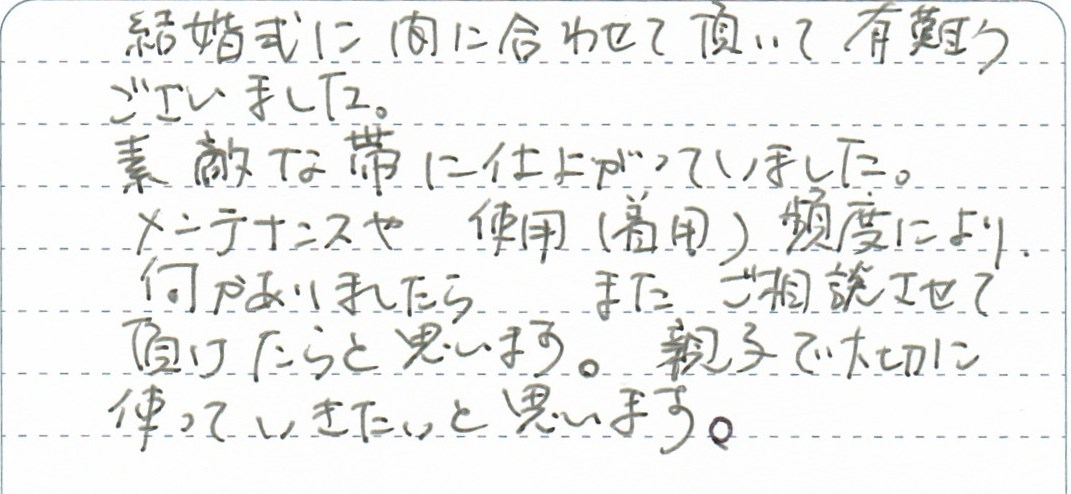 結婚式に間に合わせて頂いて有難う
ございました。
素敵な帯に仕上がっていました。
メンテナンスや 使用(着用)頻度により、
何かありましたら また ご相談させて
頂けたらと思います。親子で大切に
使っていきたいと思います。